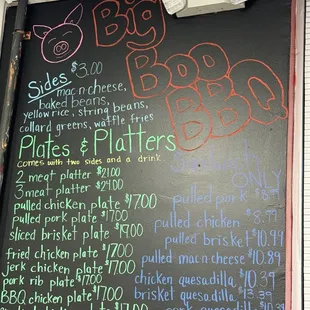 Big
Boo
BBQ
Sides $3.00
mac n cheese,
baked beans,
yellow rice, string beans,
collard greens, waffle fries
Plates & Platters
comes with two sides and a drink
2 meat platter $21.00
3 meat platter $24.00
pulled chicken plate $17.00
pulled pork plate $17.00
sliced brisket plate $19.00
fried chicken plate $17.00
jerk chicken plate $17.00
pork rib plate $17.00
BBQ chicken plate $17.00
ONLY
pulled pork
pulled chicken $8.99
pulled brisket $10.99
pulled mac n cheese $10.89
chicken quesadilla $10.39
brisket quesadilla $13.39